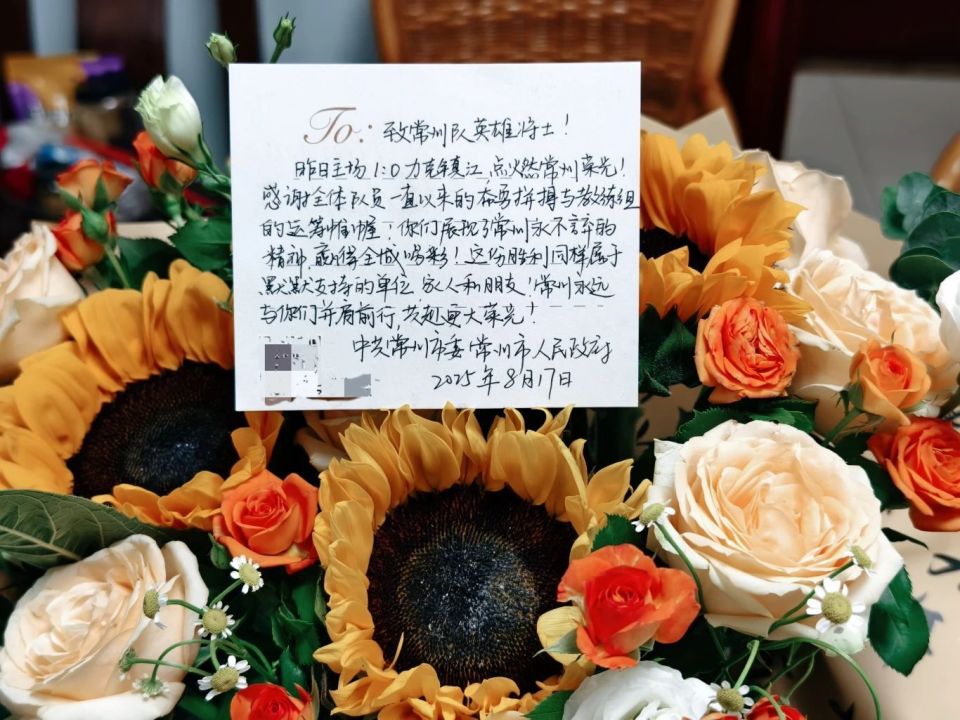 To: 致常州队英雄将士！
昨日主场1:0力克镇江,点火然常州荣光！
感谢全体队员一直以来的奋勇拼搏与教练组
的运筹帷幄！你们展现了常州永不言弃的
精神,赢得全城喝彩！这份胜利同样属于
默默支持的单位 家人和朋友！常州永远
与你们并肩前行 共赴更大荣光！
中共常州市委 常州市人民政府
2025年8月17日